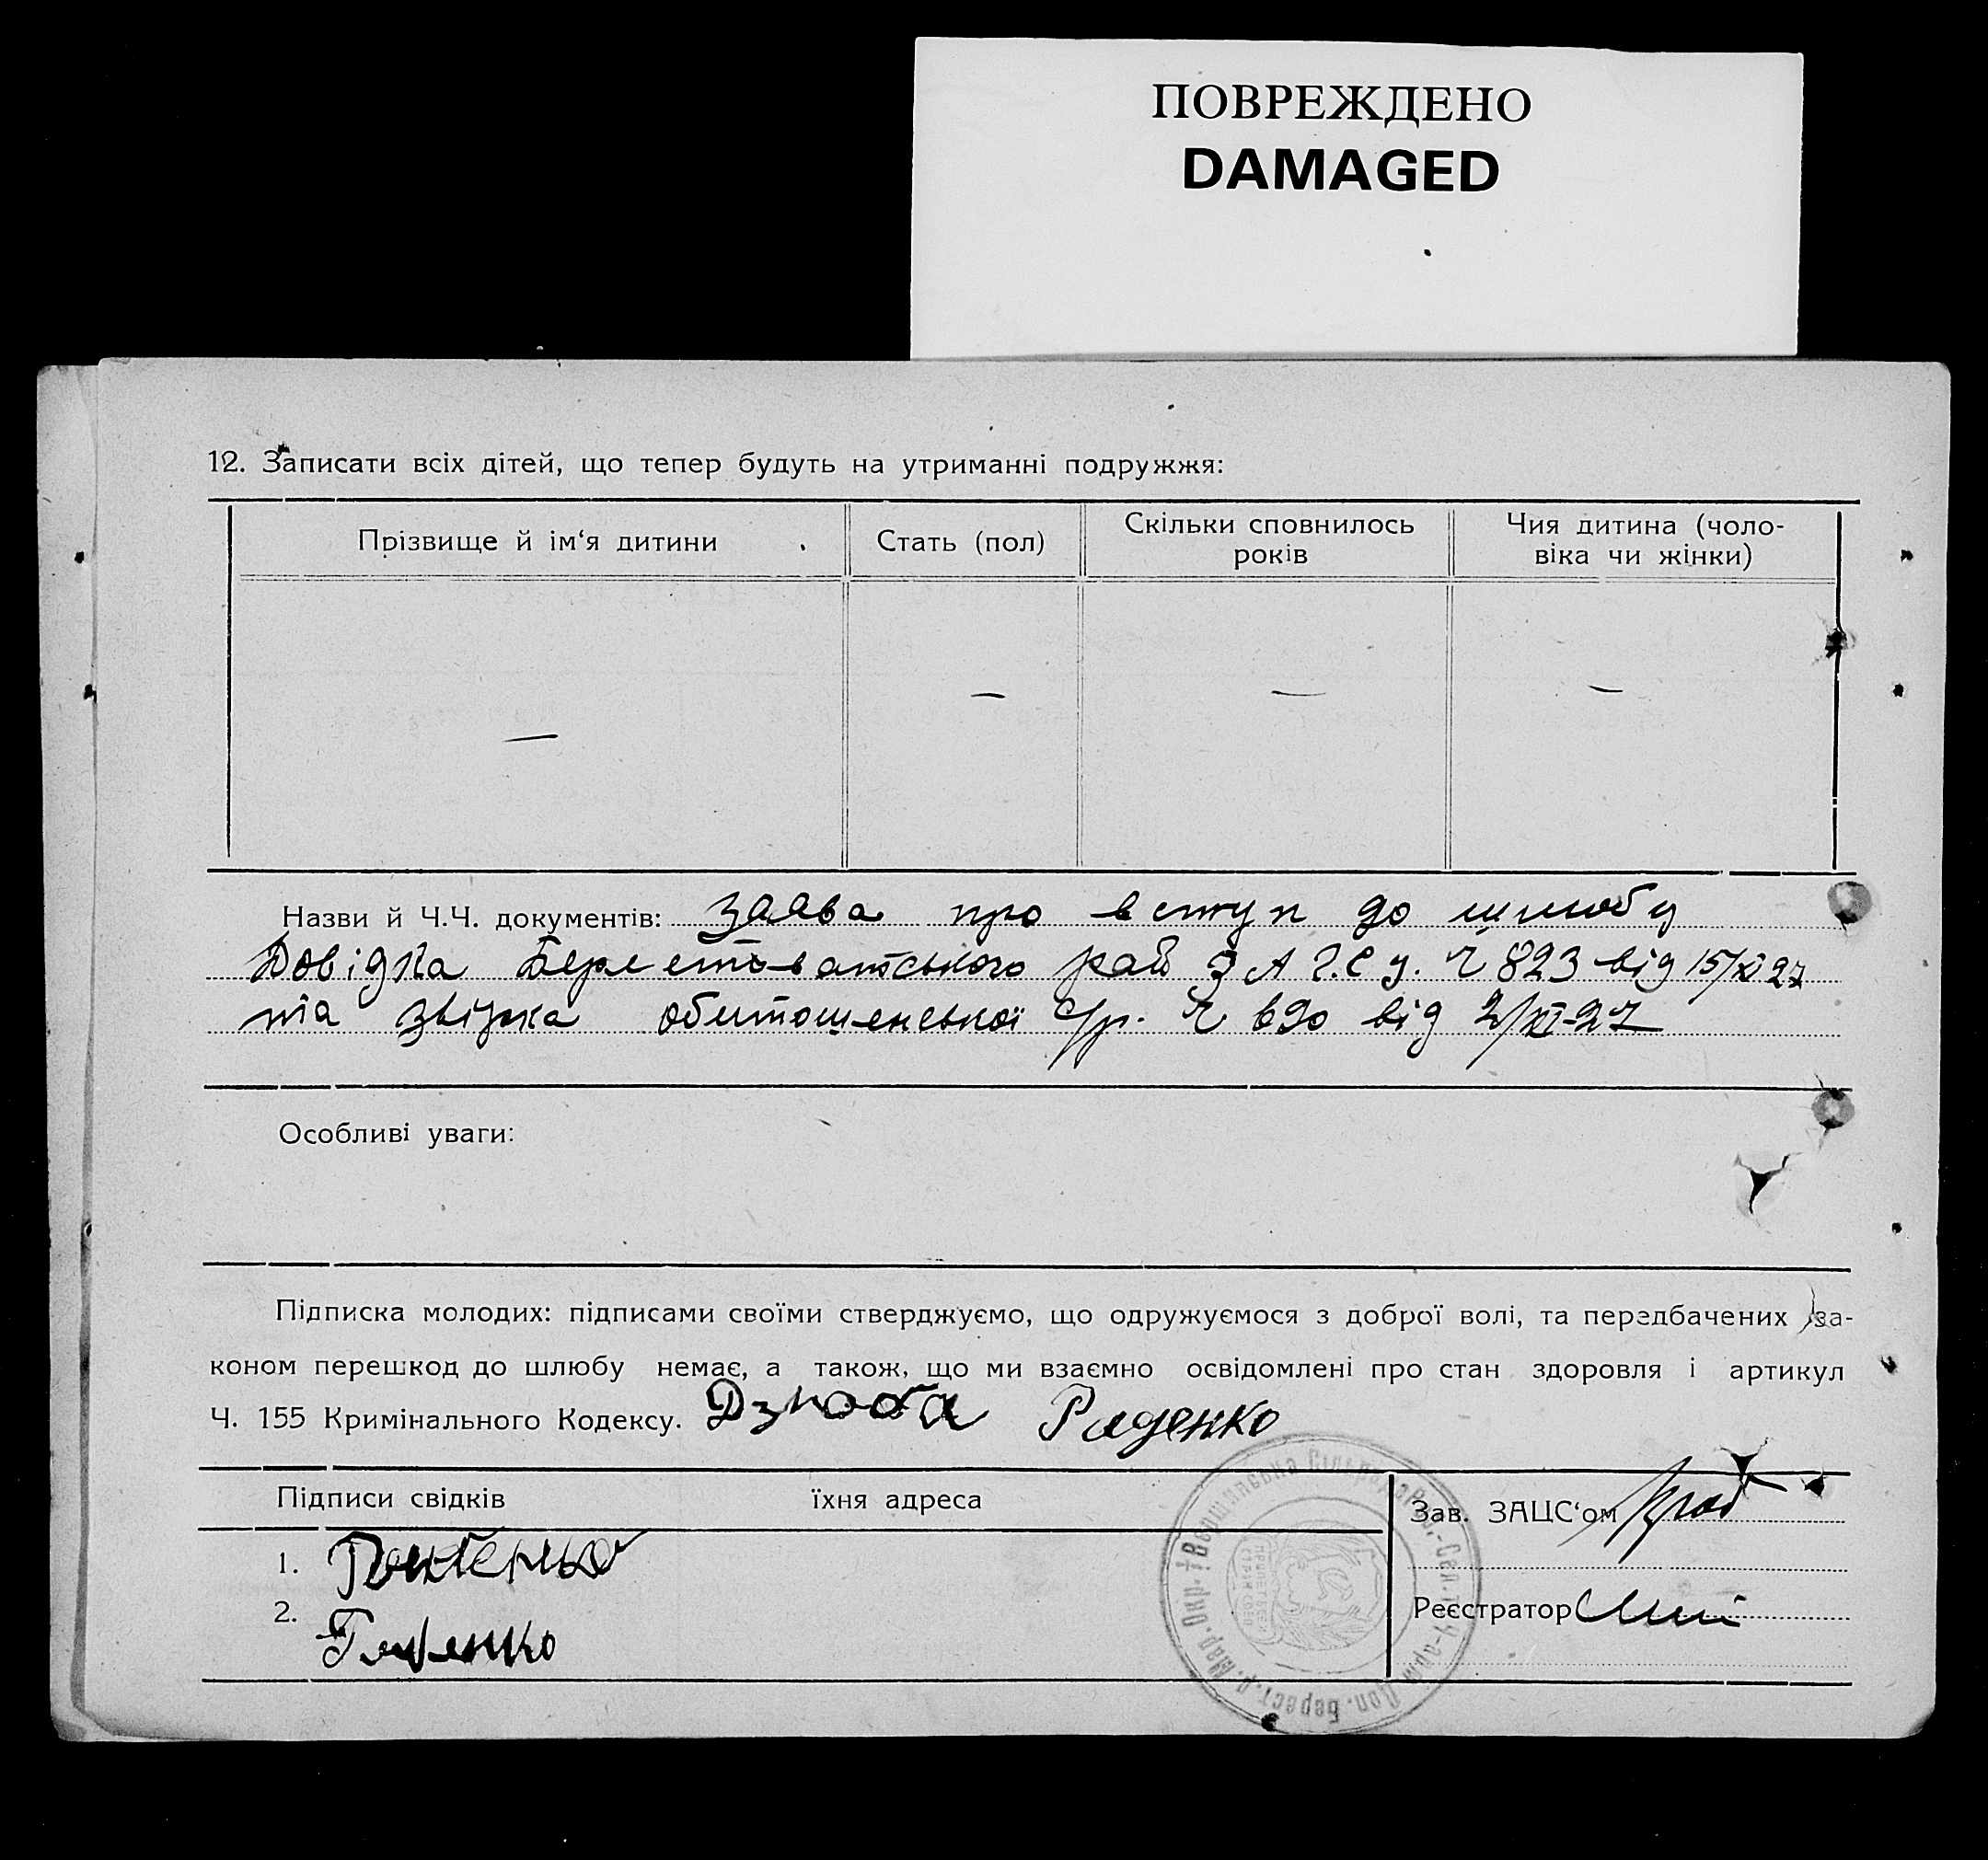 ПОВРЕЖДЕНО
DAMAGED
12. Записати всіх дітей, що тепер будуть на утриманні подружжя:
Прізвище й ім‘я дитини
Стать (пол)
Скільки сповнилось
років
Чия дитина (чоло-
віка чи жінки)
— — —
—
Назви й Ч.Ч. документів: заява про вступ до шлюбу
Довідка Берестоватського рай З А Г.С у. Ч 823 від 15/XI 27
та звізка обиточенської с/р. Ч 690 від 2/XI-27
Особливі уваги:
Підписка молодих: підписами своїми стверджуємо, що одружуємося з доброї волі, та передбачених за-
коном перешкод до шлюбу немає, а також, що ми взаємно освідомлені про стан здоровля і артикул
Ч. 155 Кримінального Кодексу. Дзюба Раденко
Підписи свідків
їхня адреса
Зав. ЗАЦС‘ом
1.
2.
Реєстратор
Вершинська Сільрада Роб.-Сел. і Ч-арм Деп. Берест. р. Мар. Окр.